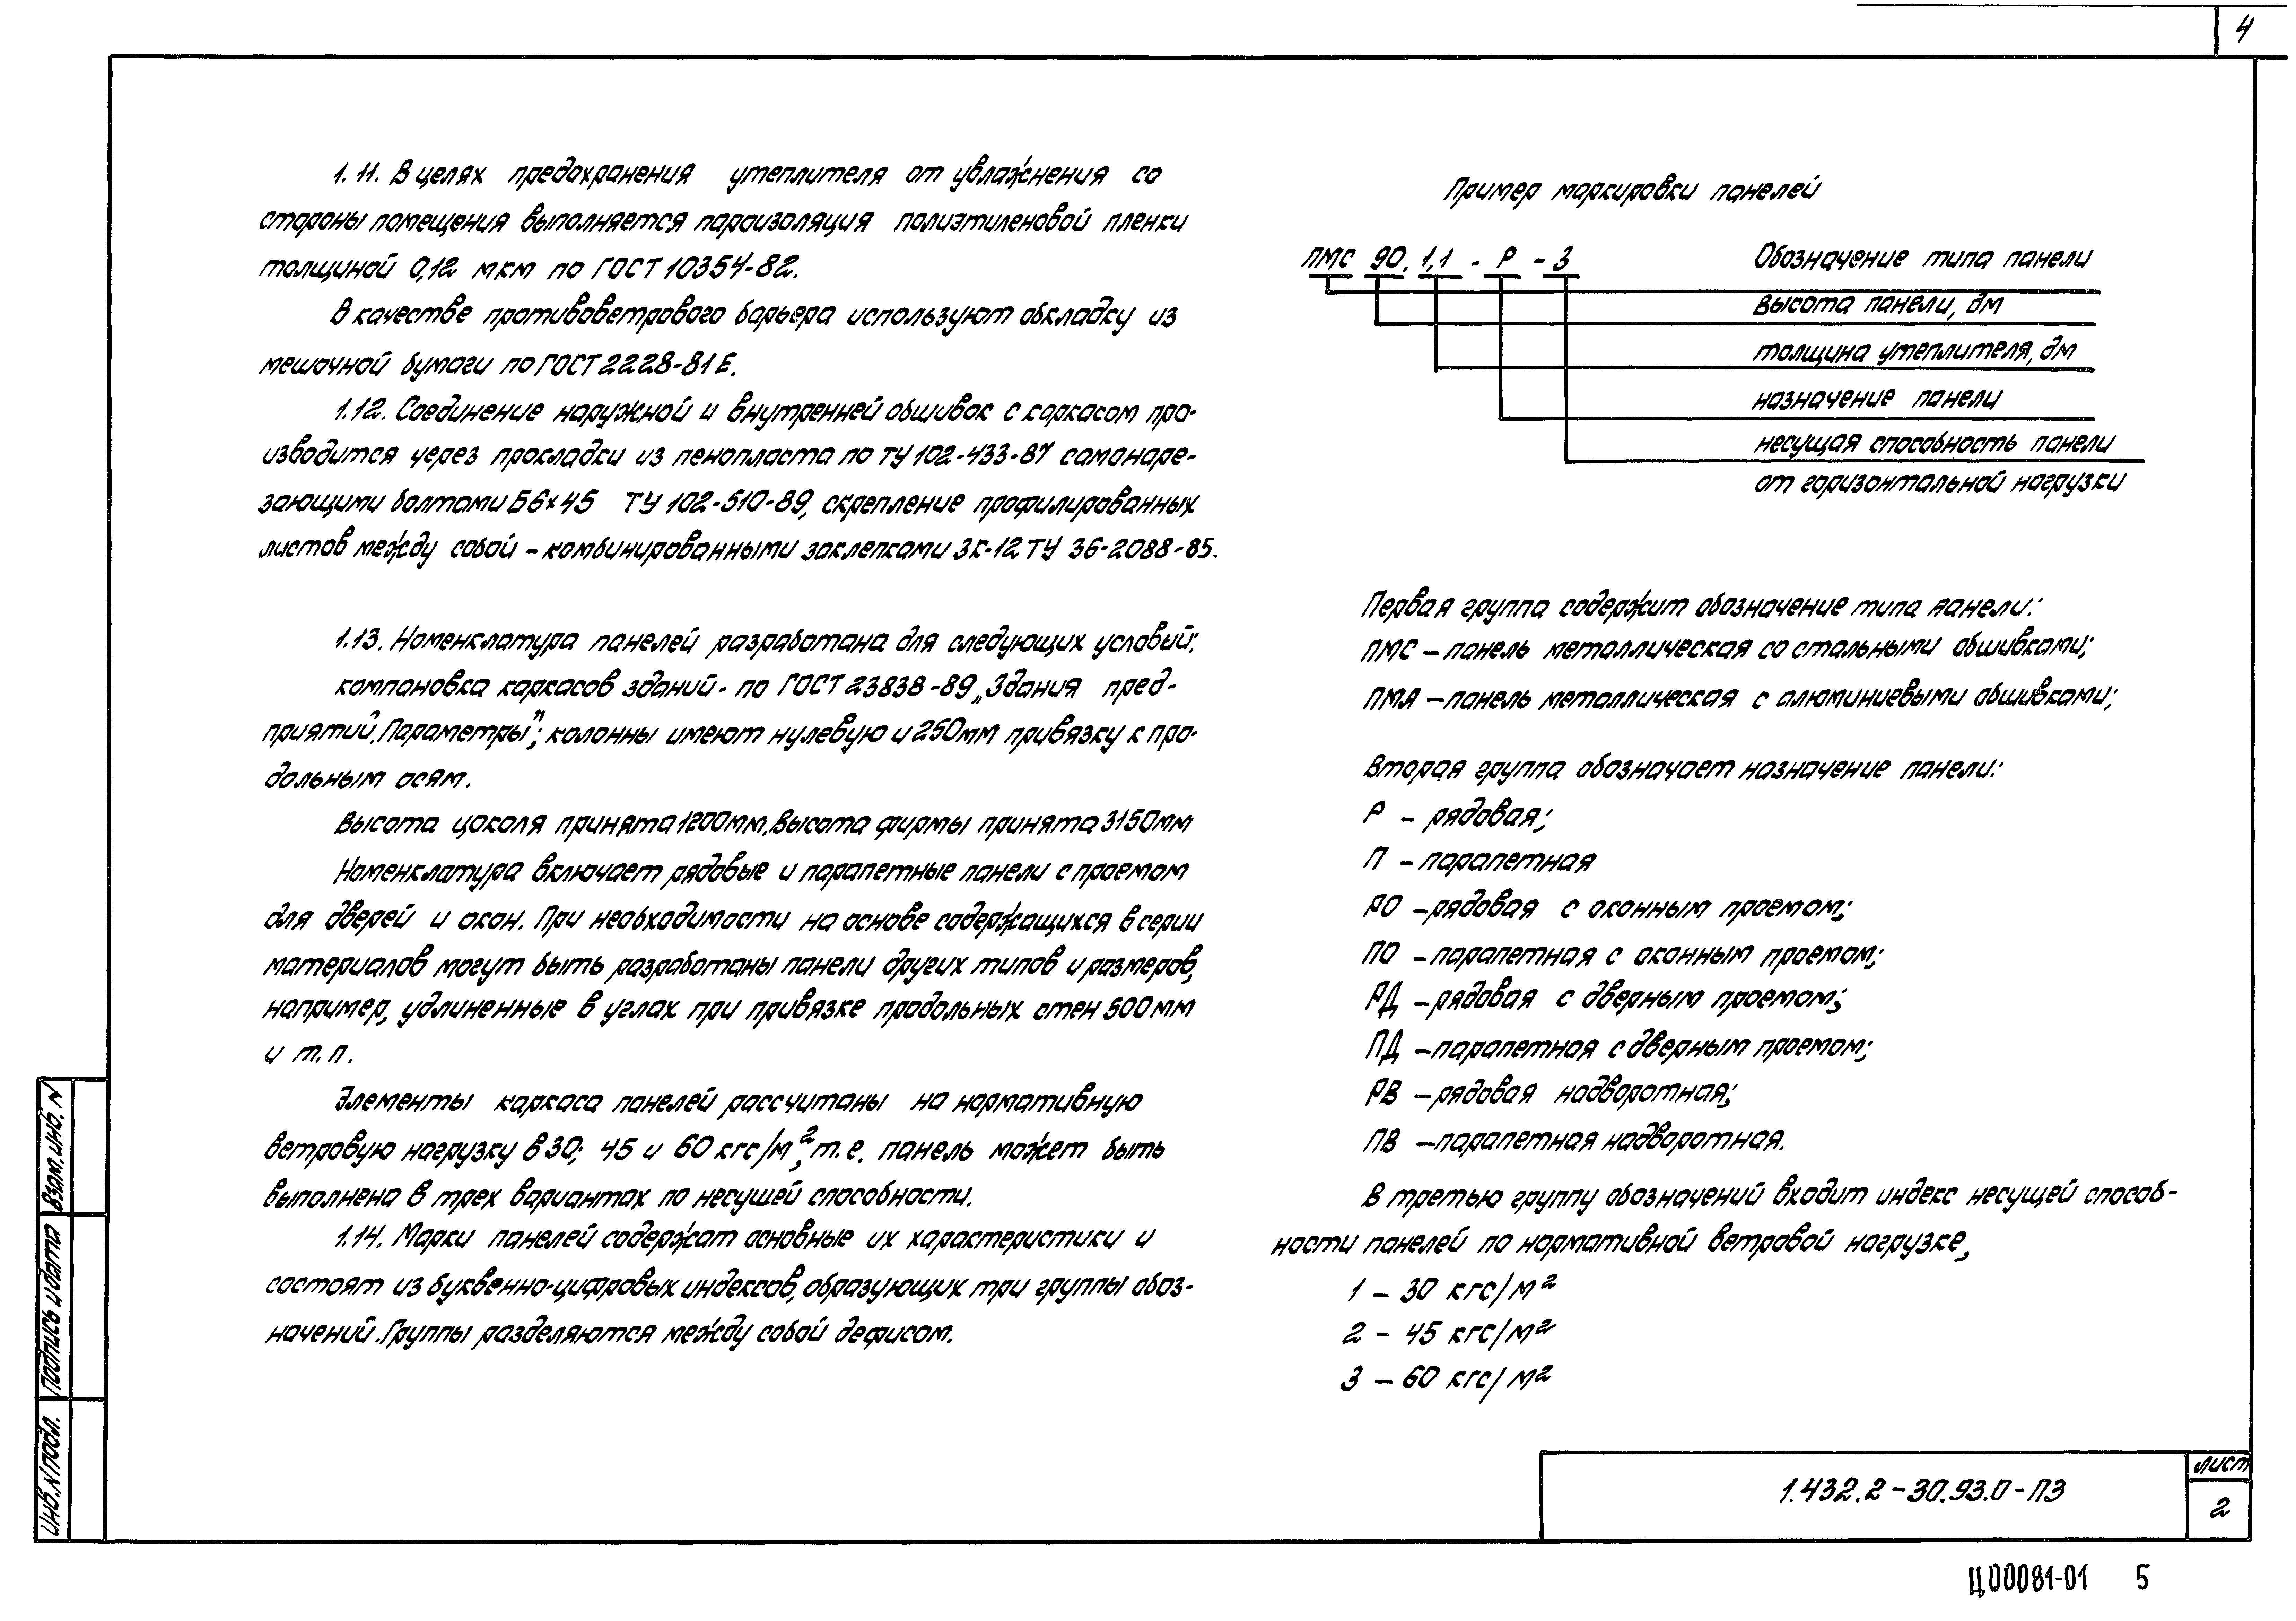 4
1.11. В целях предохранения утеплителя от увлажнения со
стороны помещения выполняется пароизоляция полиэтиленовой пленки
толщиной 0,12 мкм по ГОСТ 10354-82.
В качестве противоветрового барьера используют обкладку из
мешочной бумаги по ГОСТ 2228-81Е.
1.12. Соединение наружной и внутренней обшивок с каркасом про-
изводится через прокладки из пенопласта по ТУ 102-433-87 самонаре-
зающими болтами Б6х45 ТУ 102-510-89, скрепление профилированных
листов между собой - комбинированными заклепками ЗК-12 ТУ 36-2088-85.
1.13. Номенклатура панелей разработана для следующих условий:
компановка каркасов зданий - по ГОСТ 23838-89 „Здания пред-
приятий. Параметры"; колонны имеют нулевую и 250мм привязку к про-
дольным осям.
Высота цоколя принята 1200мм. Высота фирмы принята 3150мм
Номенклатура включает рядовые и парапетные панели с проемом
для дверей и окон. При необходимости на основе содержащихся в серии
материалов могут быть разработаны панели других типов и размеров,
например, удлиненные в углах при привязке продольных стен 500мм
и т.п.
Элементы каркаса панелей рассчитаны на нормативную
ветровую нагрузку в 30; 45 и 60 кгс/м², т.е. панель может быть
выполнена в трех вариантах по несушей способности.
1.14. Марки панелей содержат основные их характеристики и
состоят из буквенно-цифровых индексов, образующих три группы обоз-
начений. Группы разделяются между собой дефисом.
Пример маркировки панелей
ПМС 90.1,1 - Р - 3 Обозначение типа панели
высота панели, дм
толщина утеплителя, дм
назначение панели
несущая способность панели
от горизонтальной нагрузки
Первая группа содержит обозначение типа панели:
ПМС - панель металлическая со стальными обшивками;
ПМА - панель металлическая с алюминиевыми обшивками;
Вторая группа обозначает назначение панели:
Р - рядовая;
П - парапетная
РО - рядовая с оконным проемом;
ПО - парапетная с оконным проемом;
РД - рядовая с дверным проемом;
ПД - парапетная с дверным проемом;
РВ - рядовая надворотная;
ПВ - парапетная надворотная.
В третью группу обозначений входит индекс несущей способ-
ности панелей по нормативной ветровой нагрузке,
1 - 30 кгс/м²
2 - 45 кгс/м²
3 - 60 кгс/м²
Взам. инв. N
Подпись и дата
Инв. N подл.
1.432.2-30.93.0-ПЗ
лист
2
Ц00081-01 5